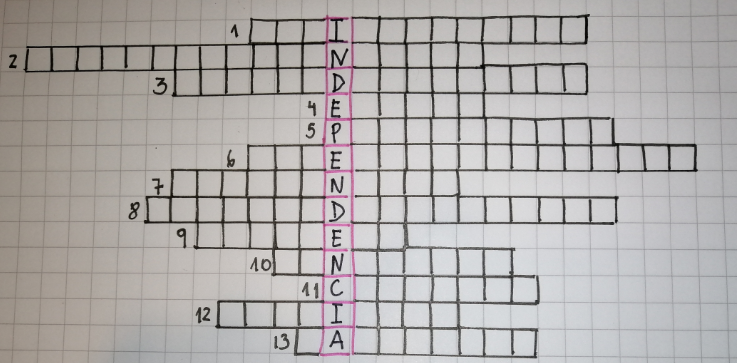 1 I
2 N
3 D
4 E
5 P
6 E
7 N
8 D
9 E
10 N
11 C
12 I
13 A